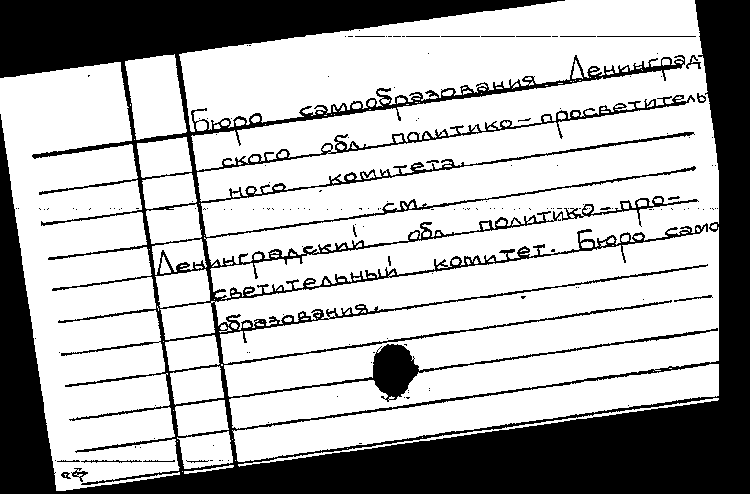 Бюро самообразования Ленинград
ского обл. политико-просветитель
ного комитета.
см.
Ленинградский обл. политико-про-
светительный комитет. Бюро само
образования.